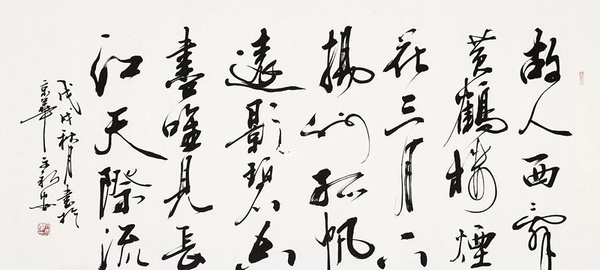 故人西辭
黄鶴樓煙
花三月下
揚州孤帆
遠影碧空
盡唯見長
江天際流
戊戌秋月書於
京華